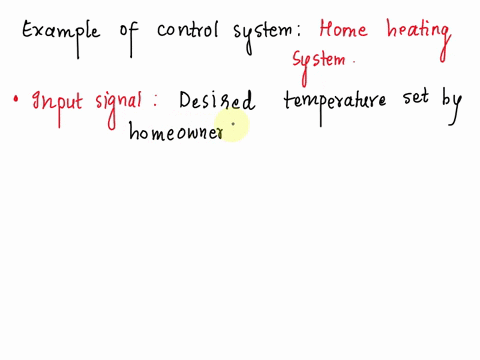 Example of control system: Home heating
System.
• Input signal: Desired temperature set by
homeowner